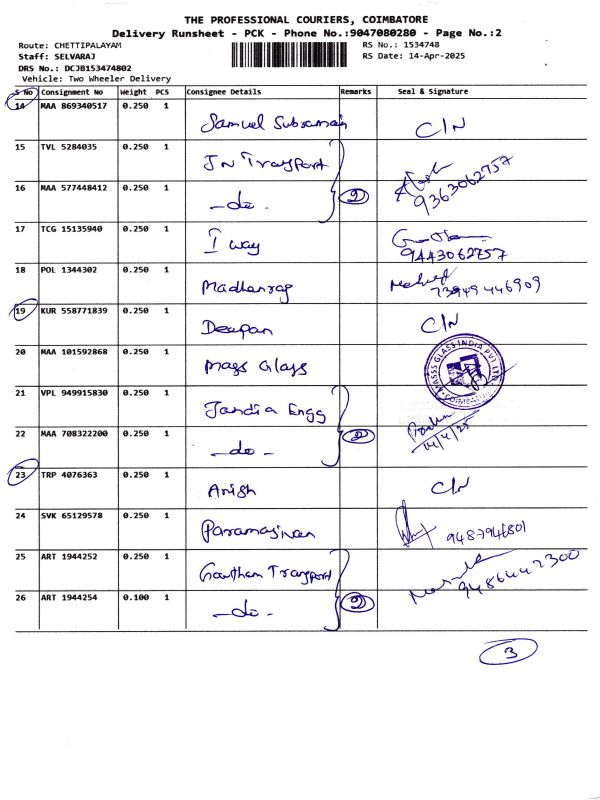 THE PROFESSIONAL COURIERS, COIMBATORE
Delivery Runsheet - PCK - Phone No.:9047080280 - Page No.:2
Route: CHETTIPALAYAM RS No.: 1534748
Staff: SELVARAJ RS Date: 14-Apr-2025
DRS No.: DCJB153474802
Vehicle: Two Wheeler Delivery
S No Consignment No Weight PCS Consignee Details Remarks Seal & Signature
14 MAA 869340517 0.250 1 Samuel C/N
15 TVL 5284035 0.250 1 JN Transport
16 MAA 577448412 0.250 1 -do- 2 9363062757
17 TCG 15135940 0.250 1 I way 9443062757
18 POL 1344302 0.250 1 Madhanrag
19 KUR 558771839 0.250 1 Deepan C/N
20 MAA 101592868 0.250 1 Mass Glass MASSS GLASS INDIA PVT LTD COIMBATORE
21 VPL 949915830 0.250 1 Jandia Engg
22 MAA 708322200 0.250 1 -do- 2 14/4/25
23 TRP 4076363 0.250 1 Anish C/N
24 SVK 65129578 0.250 1 Paramasivan 9487946801
25 ART 1944252 0.250 1 Gowtham Transport 9486442300
26 ART 1944254 0.100 1 -do- 2
3